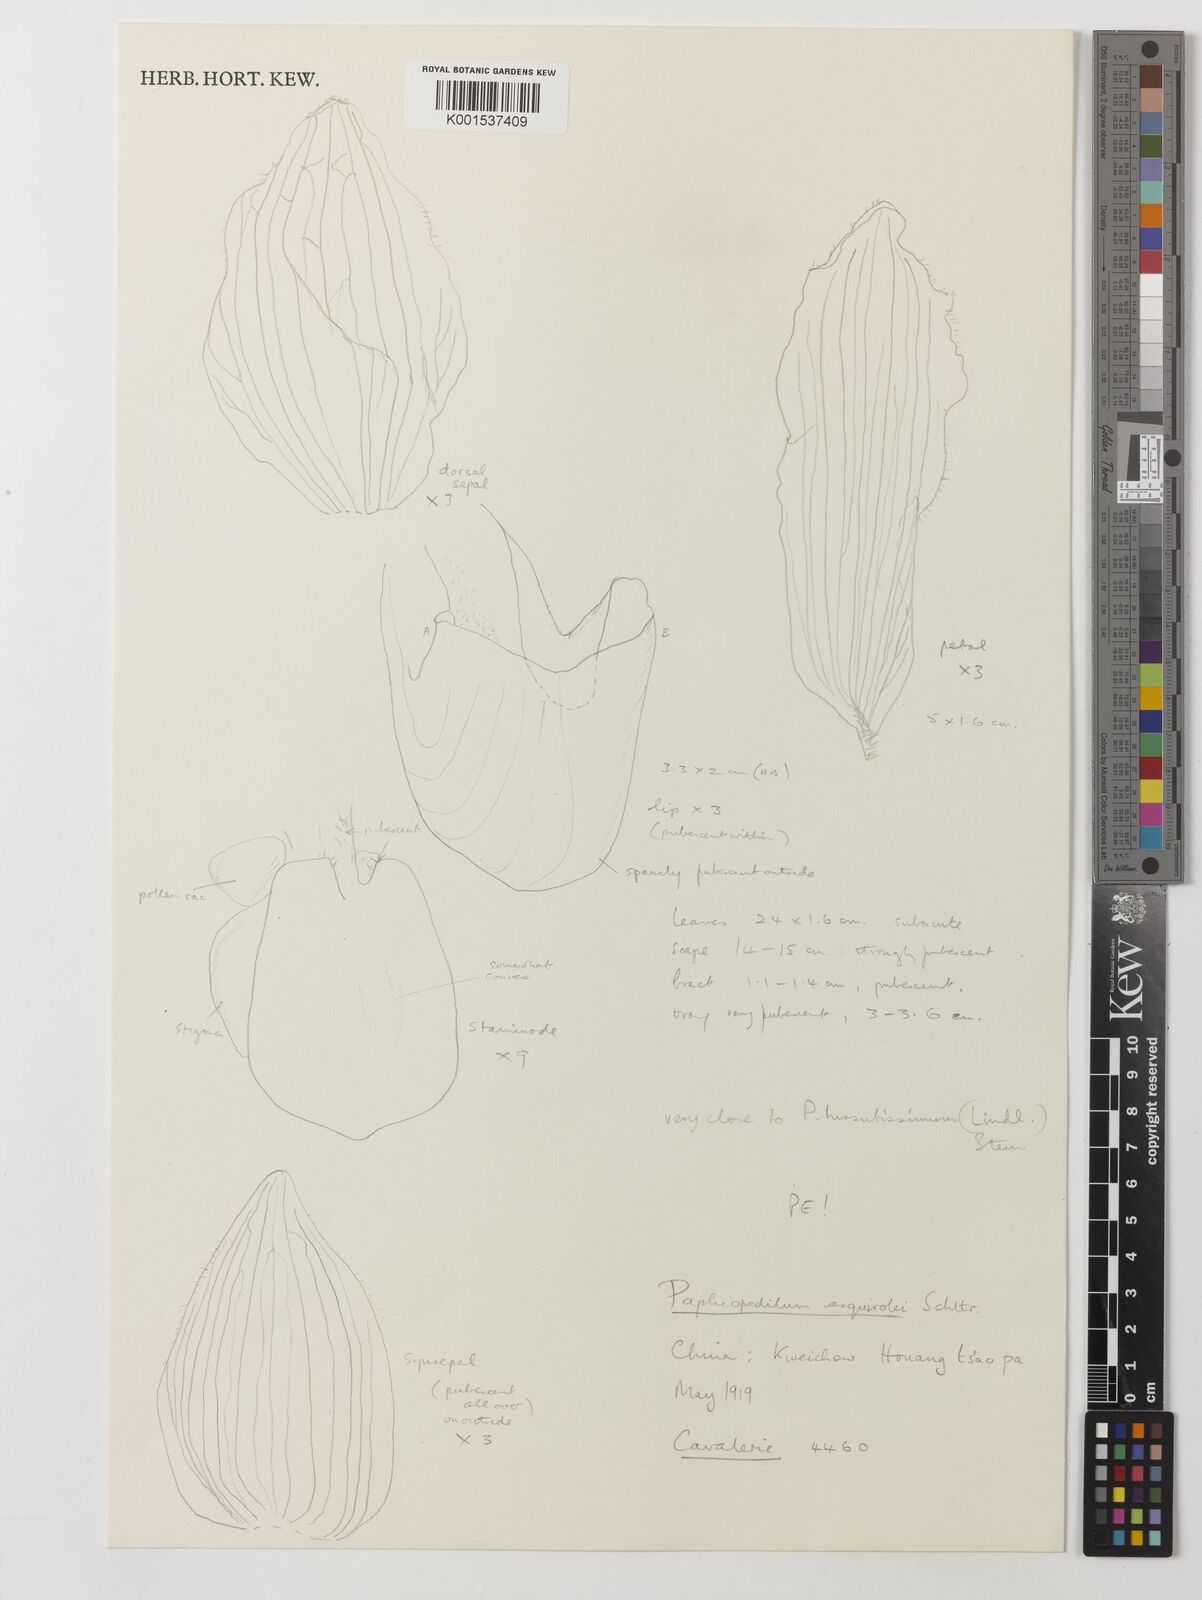 HERB. HORT. KEW.
ROYAL BOTANIC GARDENS KEW
K001537409
dorsal
sepal
×3
A
B
petal
×3
5 × 1.6 cm.
3.3 × 2 cm (AB)
lip × 3
(pubescent within)
sparsely pubescent outside
pubescent
pollen sac
somewhat
convex
stigma
Staminode
×9
leaves 24 × 1.6 cm. subacute
scape 14–15 cm. strongly pubescent
bract 1.1–1.4 cm, pubescent.
ovary very pubescent, 3–3.6 cm.
very close to P. hirsutissimum (Lindl.)
Stein
PE!
Paphiopedilum esquirolei Schltr.
China: Kweichow Houang ts'ao pa
May 1919
Cavalerie 4460
Synsepal
(pubescent
all over)
on outside
× 3
inches
D50 Illuminant, 2 degree observer
Density
Golden Thread
Colors by Munsell Color Services Lab
Kew
Royal Botanic Gardens
copyright reserved
0 1 2 3 4 5 6 7 8 9 10
cm